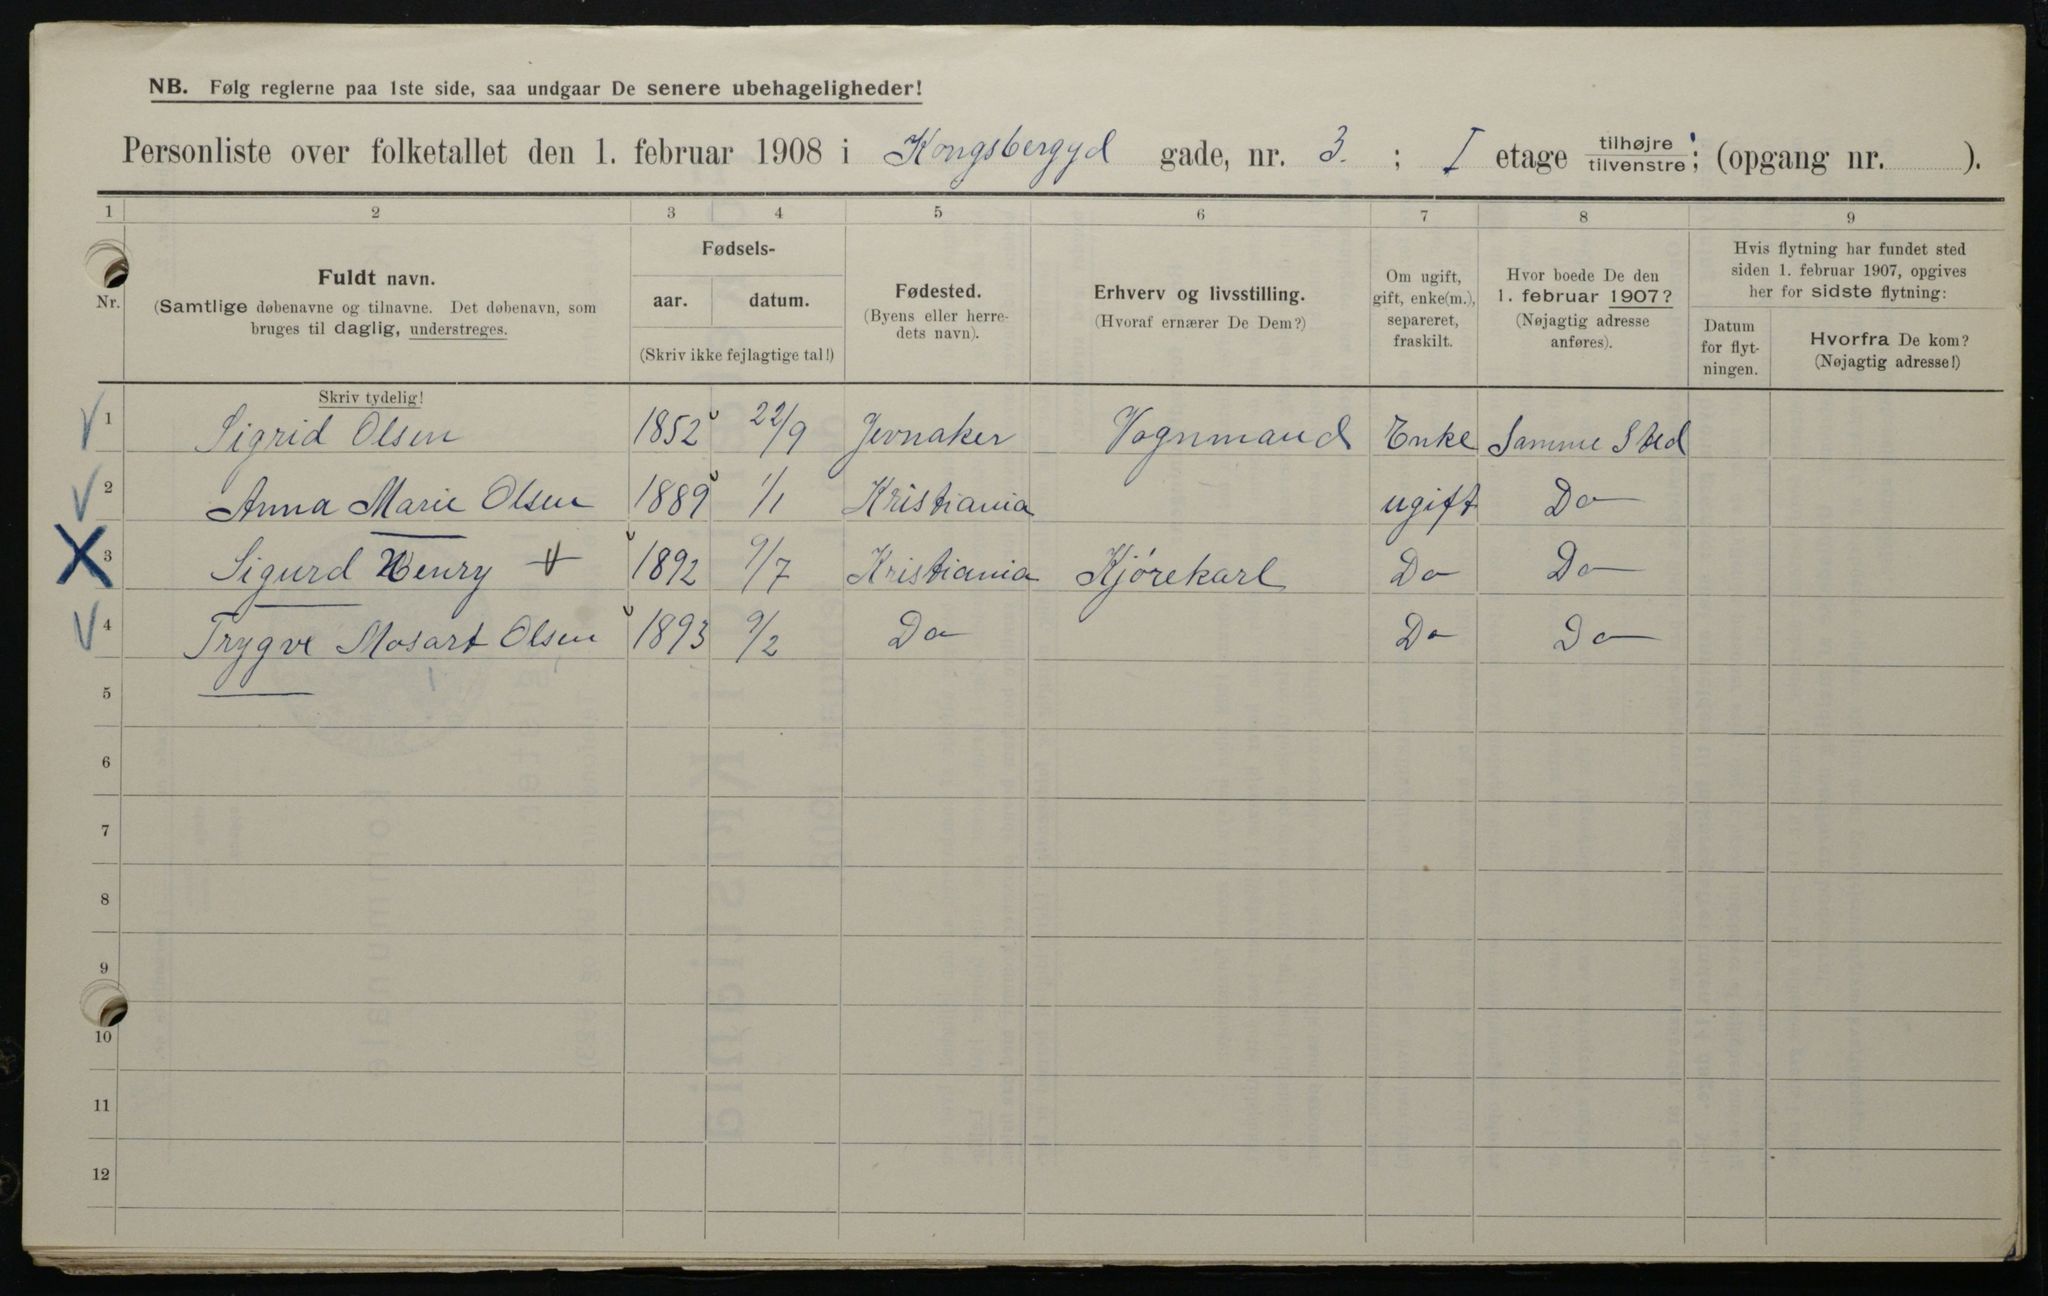 NB. Følg reglerne paa 1ste side, saa undgaar De senere ubehageligheder!
Personliste over folketallet den 1. februar 1908 i Kongsberggd gade, nr. 3. ; I etage tilhøjre tilvenstre; (opgang nr. ).
1 2 3 4 5 6 7 8 9
Nr.
Fuldt navn.
(Samtlige døbenavne og tilnavne. Det døbenavn, som
bruges til daglig, understreges.
Skriv tydelig!
Fødsels-
aar. datum.
(Skriv ikke fejlagtige tal!)
Fødested.
(Byens eller herre-
dets navn).
Erhverv og livsstilling.
(Hvoraf ernærer De Dem?)
Om ugift,
gift, enke(m.),
separeret,
fraskilt.
Hvor boede De den
1. februar 1907?
(Nøjagtig adresse
anføres).
Hvis flytning har fundet sted
siden 1. februar 1907, opgives
her for sidste flytning:
Datum
for flyt-
ningen.
Hvorfra De kom?
(Nøjagtig adresse!)
1 Sigrid Olsen 1852 22/9 Jevnaker Vognmand Enke Samme Sted
2 Anna Marie Olsen 1889 1/1 Kristiania ugift Do
3 Sigurd Henry 1892 9/7 Kristiania Kjørekarl Do Do
4 Trygve Mosart Olsen 1893 9/2 Do Do Do
5
6
7
8
9
10
11
12